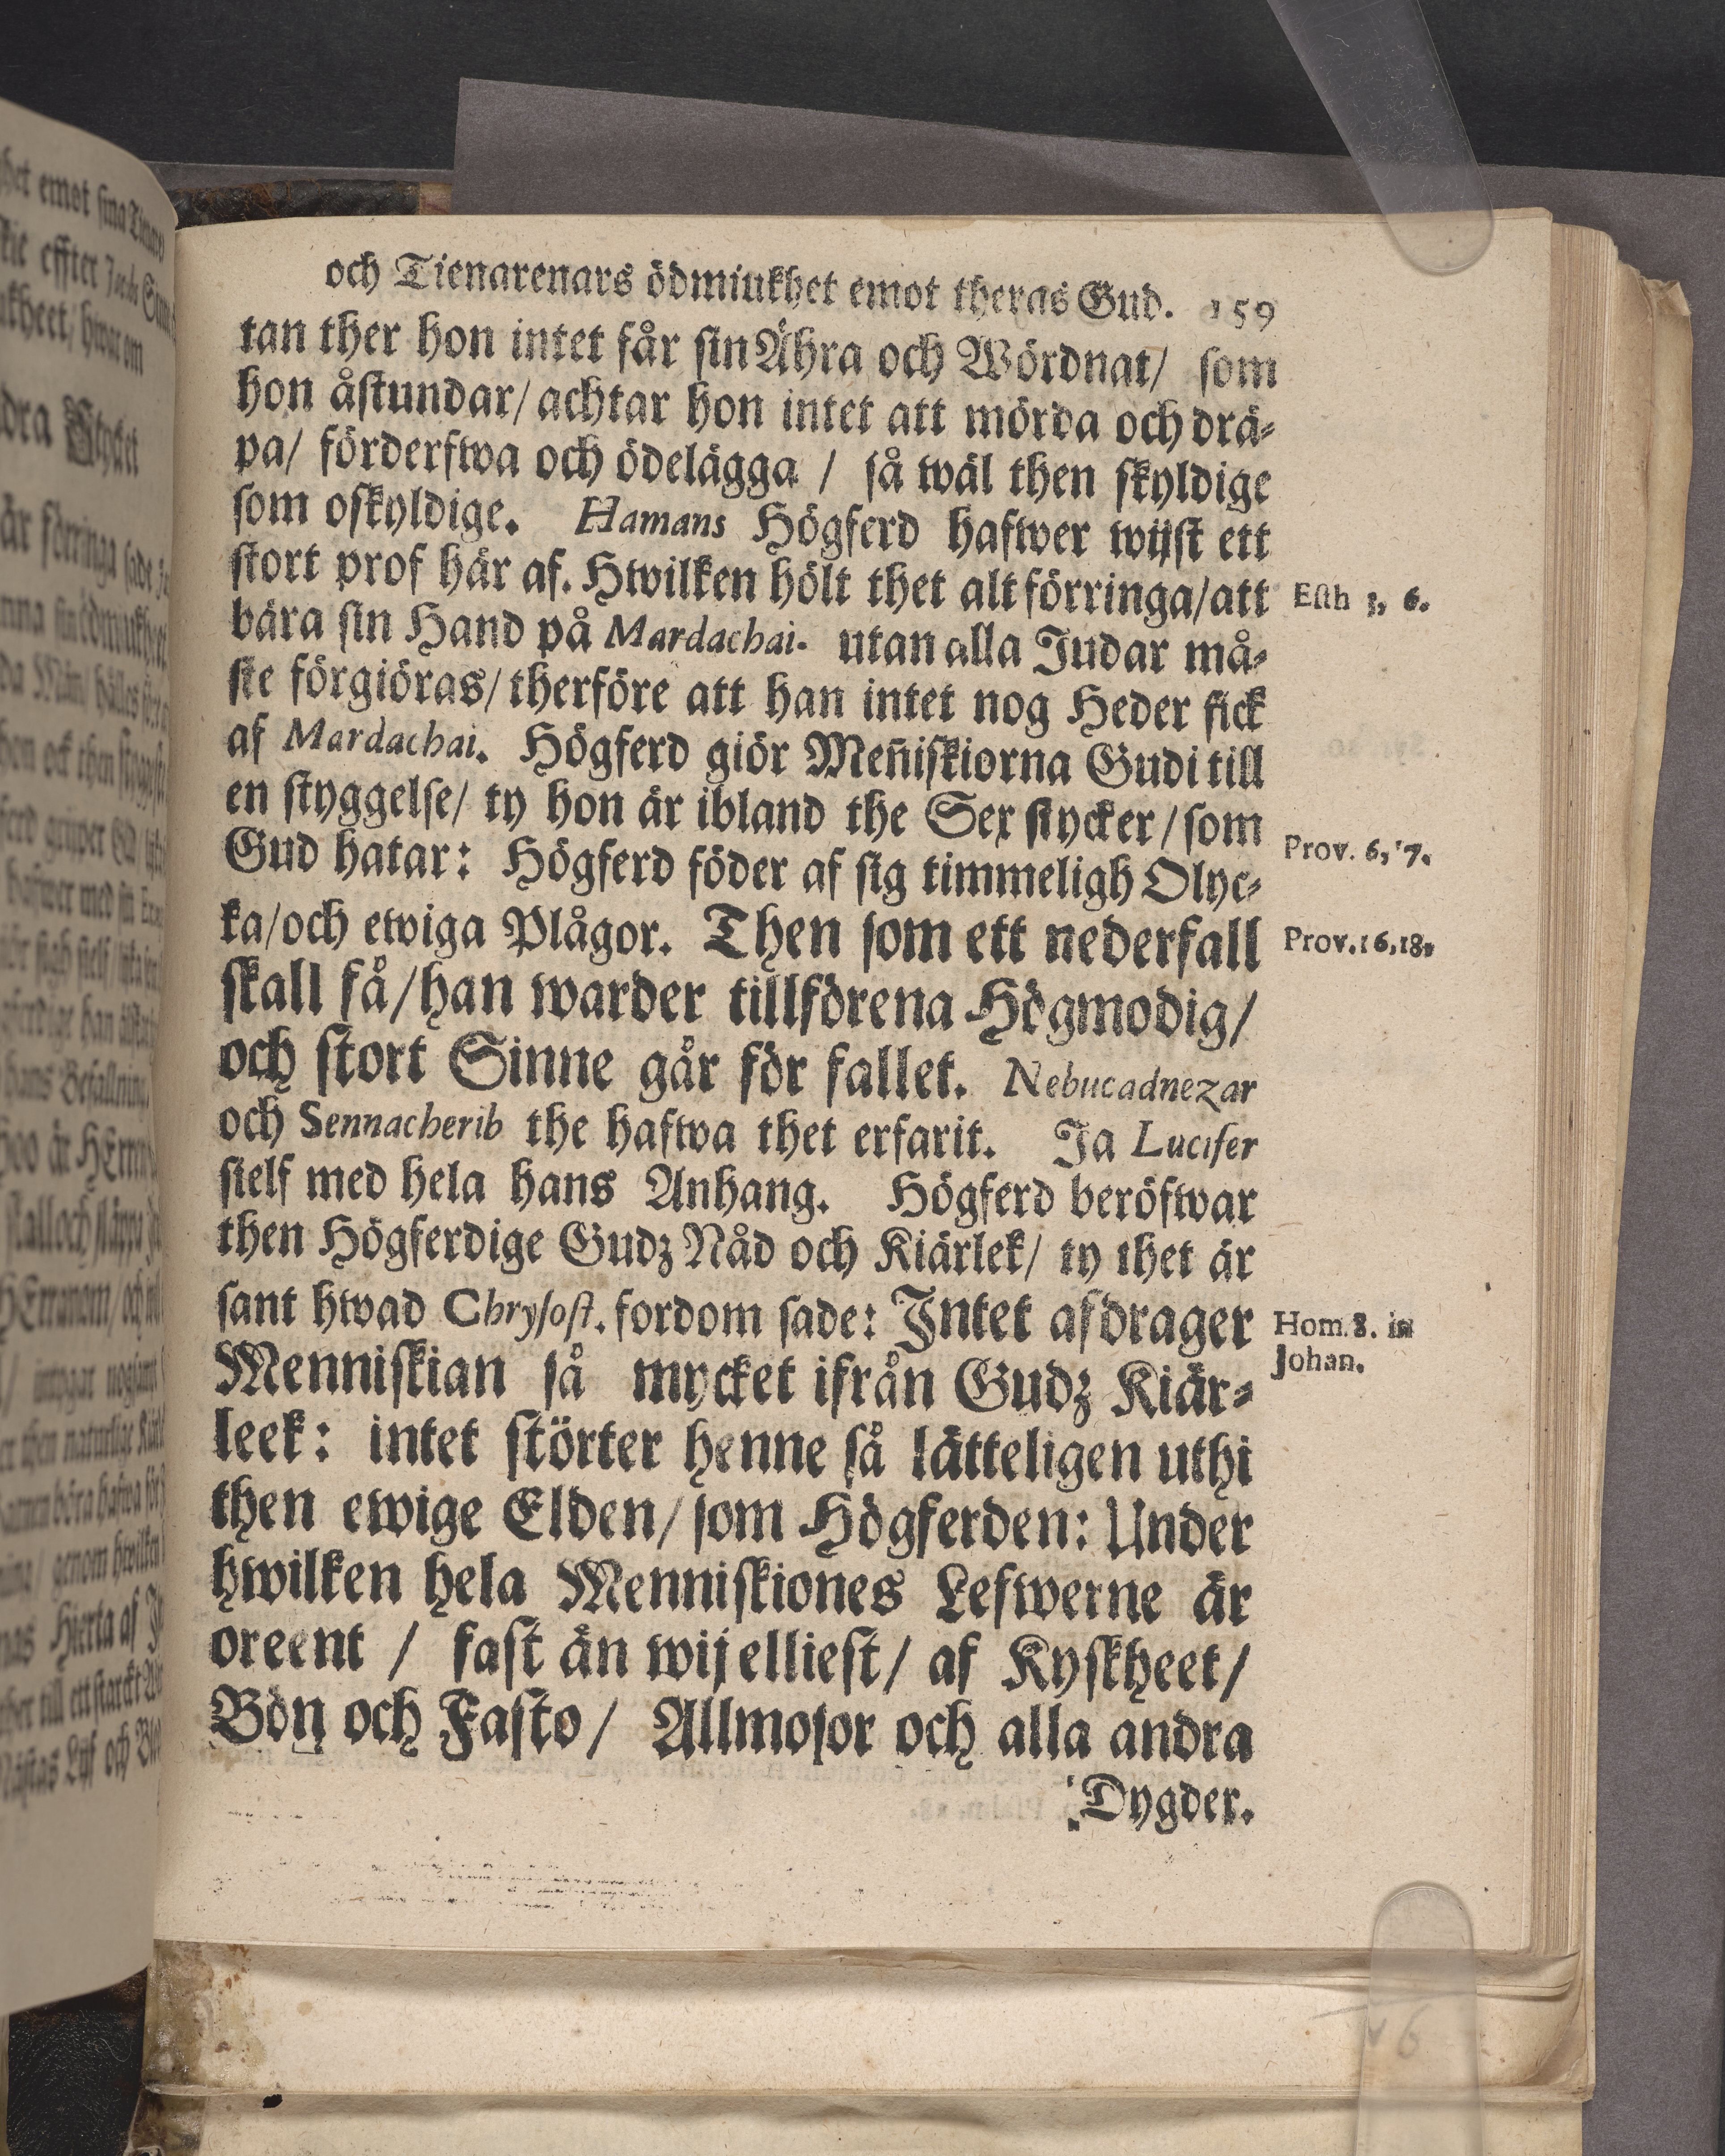 och Tienarenars ödmiukhet emot theras Gud. 159
tan ther hon intet får sin Ähra och Wördnat/ som
hon åstundar/ achtar hon intet att mörda och drä-
pa/ förderfwa och ödelägga / så wäl then skyldige
som oskyldige. Hamans Högferd hafwer wijst ett
stort prof här af. Hwilken hölt thet alt förringa/ att
Esth 3, 6.
bära sin Hand på Mardachai. utan alla Judar må-
ste förgiöras/ therföre att han intet nog Heder fick
af Mardachai. Högferd giör Meñiskiorna Gudi till
en styggelse/ ty hon är ibland the Sex stycker/ som
Gud hatar: Högferd föder af sig timmeligh Olyc-
Prov. 6, 7.
ka/ och ewiga Plågor. Then som ett nederfall
Prov. 16, 18,
skall få/ han warder tillförena Högmodig/
och stort Sinne går för fallet. Nebucadnezar
och Sennacherib the hafwa thet erfarit. Ja Lucifer
sielf med hela hans Anhang. Högferd beröfwar
then Högferdige Gudz Nåd och Kiärlek/ ty thet är
sant hwad Chrysost. fordom sade: Intet afdrager
Hom. 8. in
Johan.
Menniskian så mycket ifrån Gudz Kiär-
leek: intet störter henne så lätteligen uthi
then ewige Elden/ som Högferden: Under
hwilken hela Menniskiones Lefwerne är
oreent / fast än wij elliest/ af Kyskheet/
Bön och Fasto/ Allmosor och alla andra
Dygder.